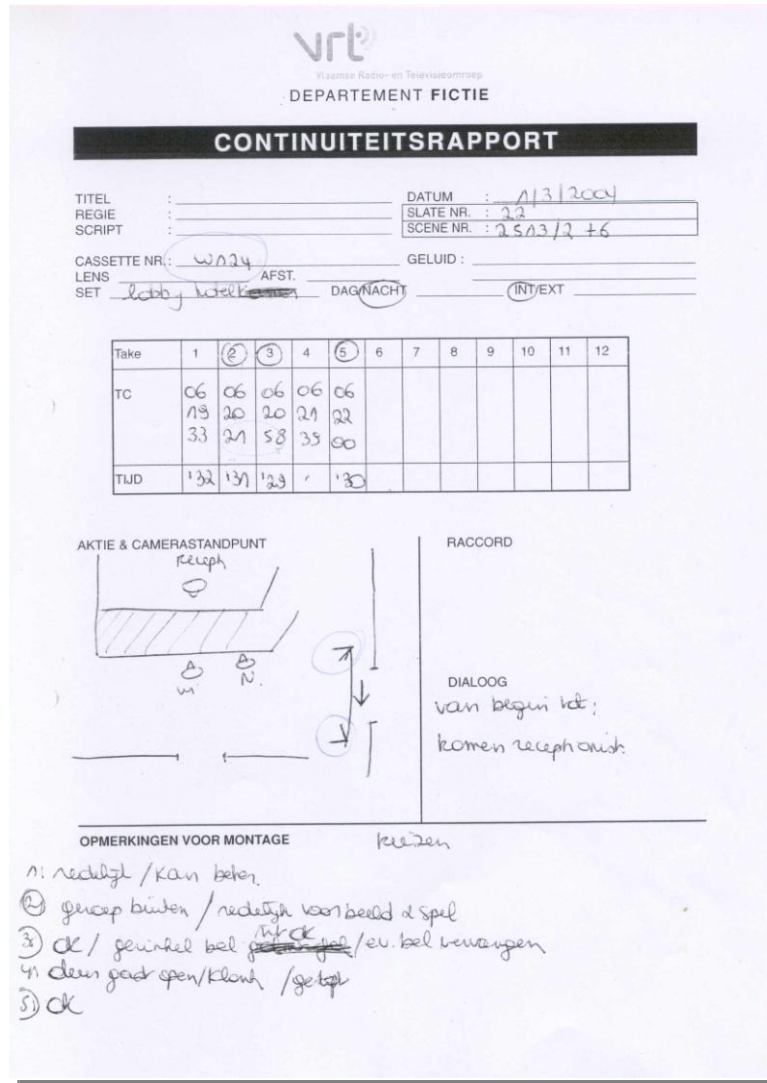 vrt
Vlaamse Radio- en Televisieomroep
DEPARTEMENT FICTIE
CONTINUITEITSRAPPORT
TITEL :
REGIE :
SCRIPT :
DATUM : 1/3/2004
SLATE NR. : 22
SCENE NR. : 2513/2 +6
CASSETTE NR.: W124
GELUID :
LENS AFST.
SET lobby hotel DAG/NACHT INT/EXT
Take 1 2 3 4 5 6 7 8 9 10 11 12
TC 06 06 06 06 06
19 20 20 21 22
33 21 58 39 00
TIJD '32 '31 '29 ' '30
AKTIE & CAMERASTANDPUNT
Recept
Wi N.
RACCORD
DIALOOG
van begin tot:
komen receptionist.
OPMERKINGEN VOOR MONTAGE kiezen
1: redelijk / kan beter
2) geroep buiten / redelijk voor beeld & spel
3) OK / gerinkel bel OK / ev. bel vervangen
4) deur gaat open / klank /
5) OK